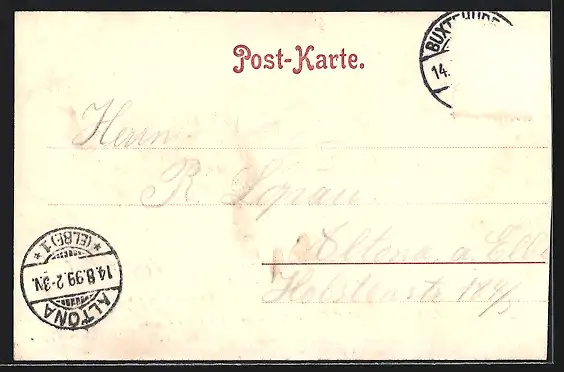 Post-Karte.
BUXTEHUDE
14.
Herrn
R. Lopau
Altona a. Elbe
Holstenstr 184/5
ALTONA
14.8.99.2-3N.
* (ELBE) 1 *